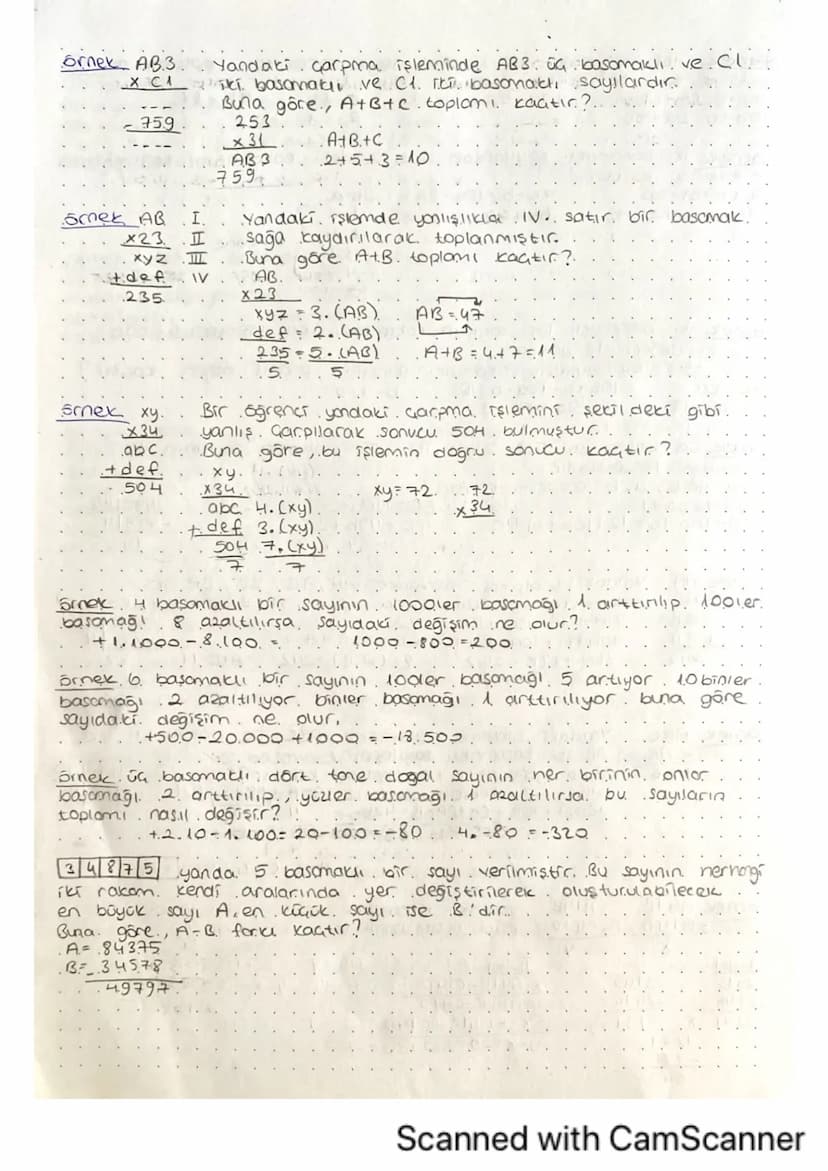 örnek AB3 Yandaki çarpma işleminde AB3 üç basamaklı ve C1
x C1 iki basamaklı ve C1 iki basamaklı sayılardır.
--- Buna göre, A+B+C toplamı kaçtır?
- 759 253
---- x 31 A+B+C
AB3 2+5+3=10
759
örnek AB I Yandaki işlemde yanlışlıkla IV. satır bir basamak
x23 II sağa kaydırılarak toplanmıştır.
xyz III Buna göre A+B toplamı kaçtır?
+ def IV AB
235 x23
xyz = 3.(AB) AB=47
def = 2.(AB)
235 = 5.(AB) A+B=4+7=11
5 5
örnek xy Bir öğrenci yandaki çarpma işlemini şekildeki gibi
x34 yanlış çarpılarak sonucu 504 bulmuştur.
abc Buna göre, bu işlemin doğru sonucu kaçtır?
+ def xy
504 x34 xy=72 72
abc 4.(xy) x34
+ def 3.(xy)
504 7.(xy)
7 7
örnek 4 basamaklı bir sayının 1000ler basamağı 1 arttırılıp 100ler
basamağı 8 azaltılırsa sayıdaki değişim ne olur?
+1.1000-8.100 = 1000-800=200
örnek 6 basamaklı bir sayının 100ler basamağı 5 artıyor 10binler
basamağı 2 azaltılıyor binler basamağı 1 arttırılıyor buna göre
sayıdaki değişim ne olur.
+500-20.000+1000=-18.500
örnek üç basamaklı dört tane doğal sayının her birinin onlar
basamağı 2 arttırılıp, yüzler basamağı 1 azaltılırsa bu sayıların
toplamı nasıl değişir?
+2.10-1.100= 20-100=-80 4.-80=-320
3 4 8 7 5 yanda 5 basamaklı bir sayı verilmiştir. Bu sayının herhangi
iki rakam kendi aralarında yer değiştirilerek oluşturulabilecek
en büyük sayı A, en küçük sayı ise B'dir.
Buna göre, A-B farkı kaçtır?
A= 84375
B=- 34578
49797
Scanned with CamScanner